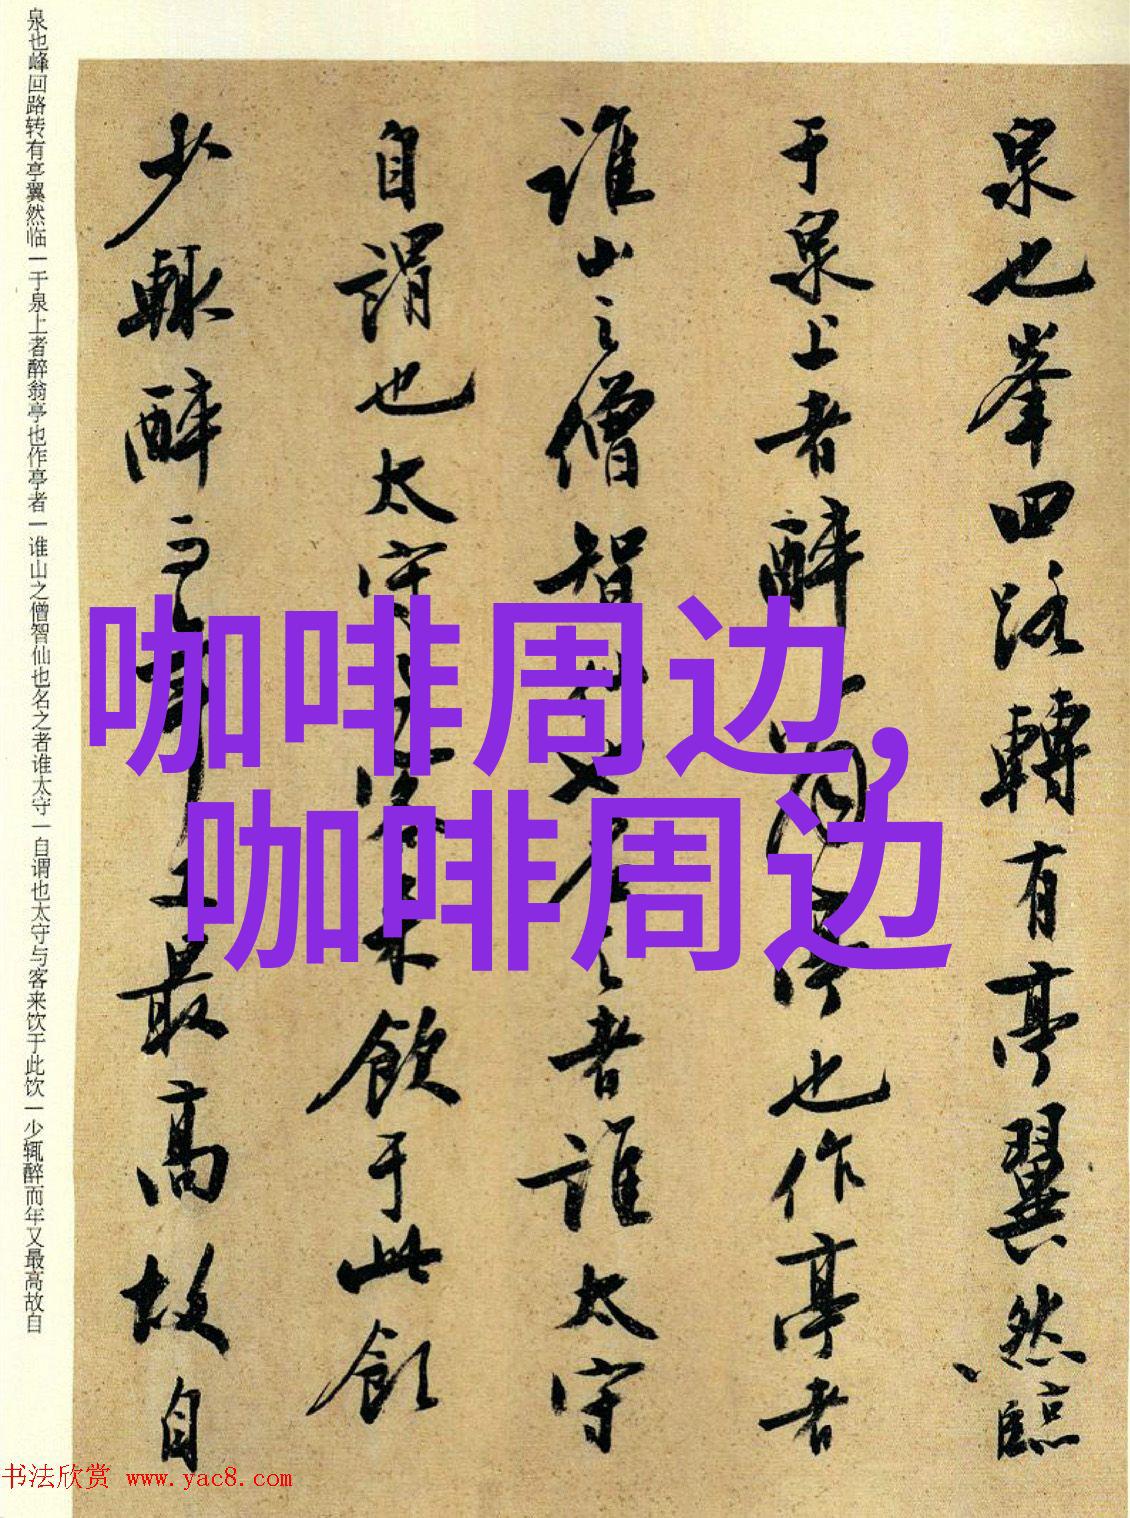 泉也峯回路轉有亭翼然臨
于泉上者醉翁亭也作亭者
誰山之僧智仙也名之者誰太守
自謂也太守與客來飲于此飲
少輒醉而年又最高故自
泉也峰回路转有亭翼然临一于泉上者醉翁亭也作亭者一谁山之僧智仙也名之者谁太守一自谓也太守与客来饮于此饮一少辄醉而年又最高故自
咖啡周边,
咖啡周边
书法欣赏 www.yac8.com